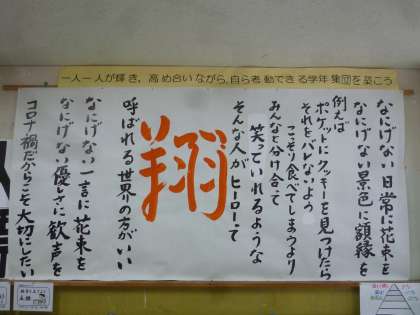 一人一人が輝き、高め合いながら、自ら考動できる学年集団を築こう
なにげない日常に花束を
なにげない景色に額縁を
例えば
ポケットにクッキーを見つけたら
それをバレないよう
こっそり食べてしまうより
みんなと分け合って
笑っていれるような
そんな人がヒーローって
呼ばれる世界の方がいい
翔
なにげない一言に花束を
なにげない優しさに歓声を
コロナ禍だからこそ大切にしたい